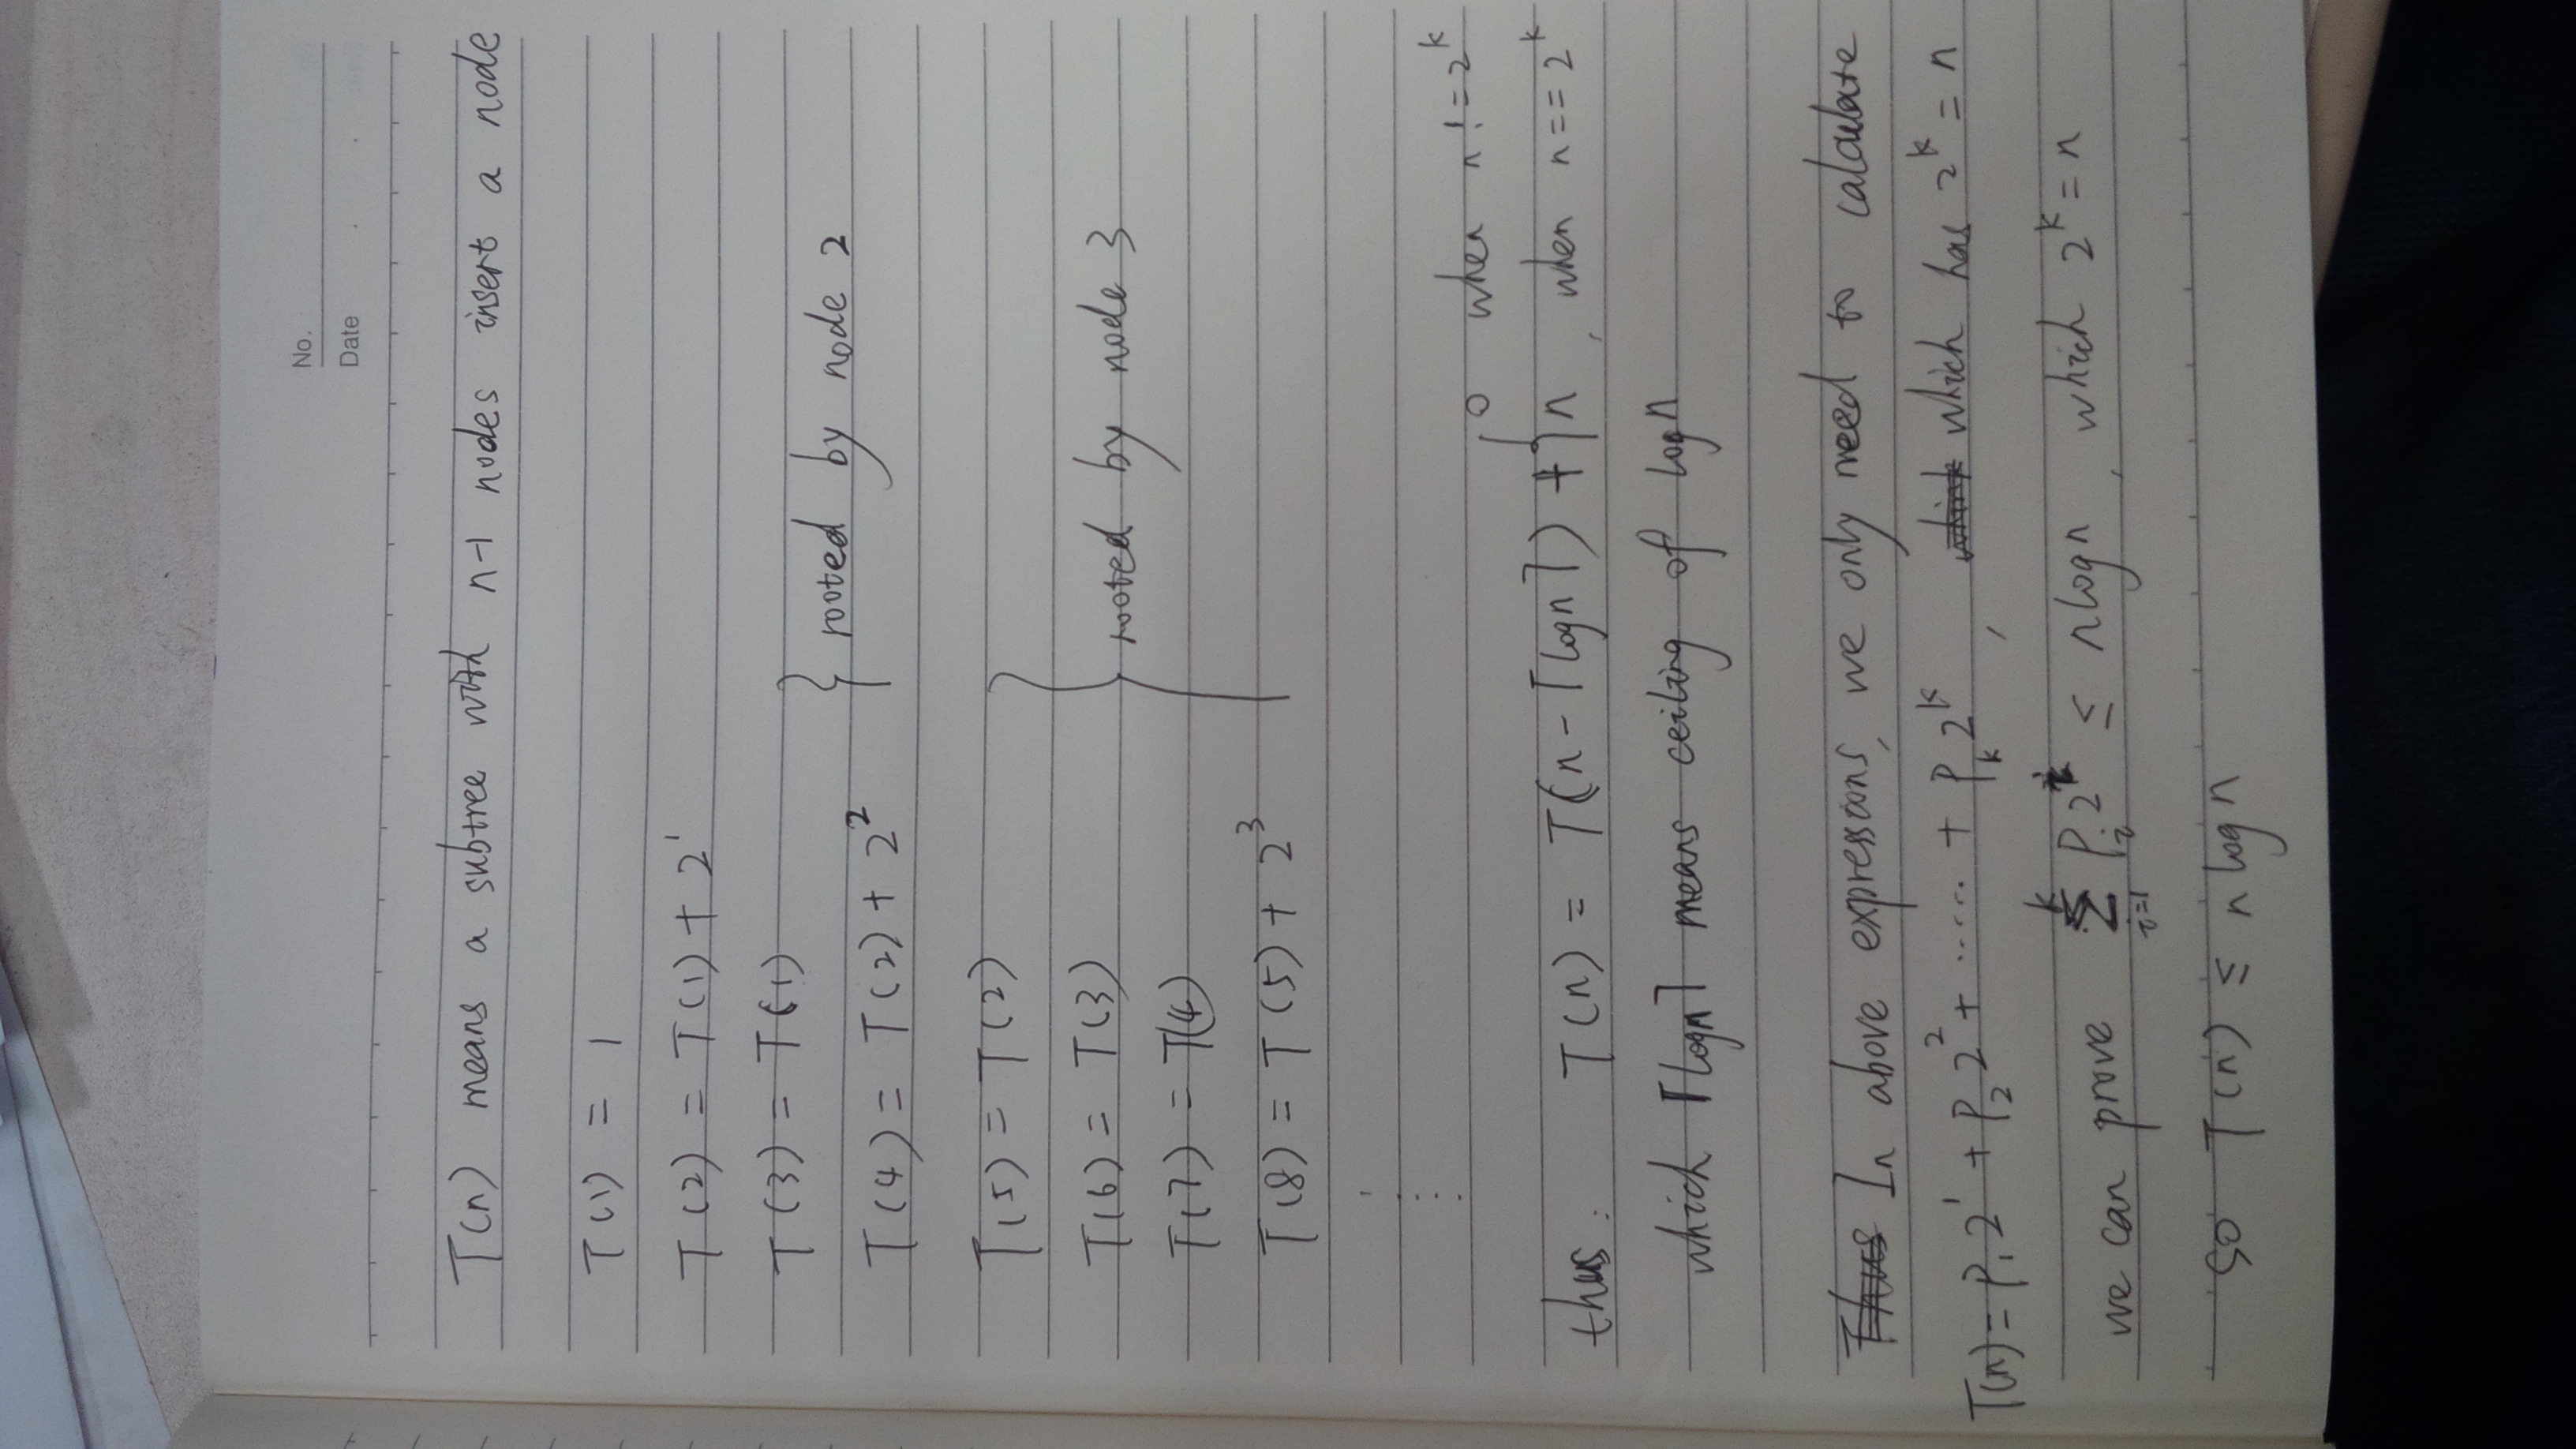 No.
Date
T(n) means a subtree with n-1 nodes insert a node
T(1) = 1
T(2) = T(1) + 2¹
T(3) = T(1)
T(4) = T(2) + 2²
} rooted by node 2
T(5) = T(2)
T(6) = T(3)
T(7) = T(4)
T(8) = T(5) + 2³
} rooted by node 3
⋮
thus: T(n) = T(n-⌈logn⌉) + { 0 when n != 2^k
n, when n == 2^k
which ⌈logn⌉ means ceiling of logn
In above expressions, we only need to calculate
T(n) = P₁2¹ + P₂2² + ...... + P_k 2^k, which has 2^k = n
we can prove Σ_{i=1}^{k} P_i 2^i ≤ nlogn, which 2^k = n
so T(n) ≤ nlogn